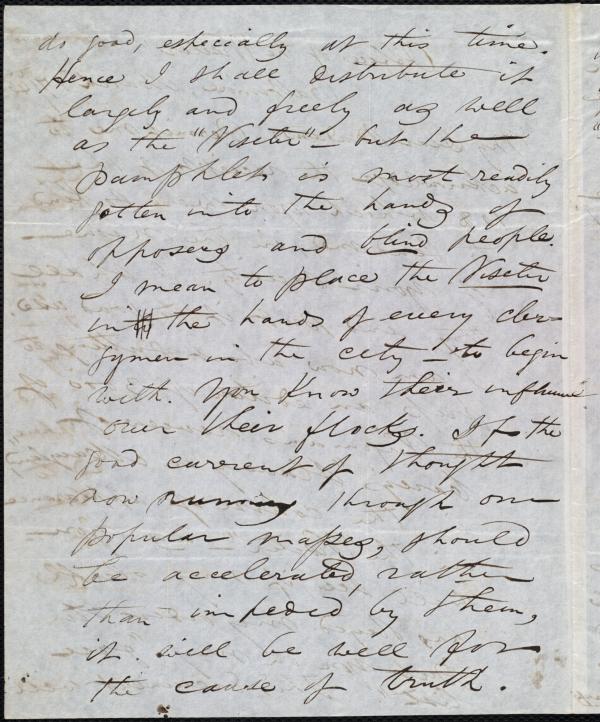 do good, especially at this time.
Hence I shall distribute it
largely and freely as well
as the "Viseter" - but the
pamphlet is most readily
gotten into the hands of
opposers and blind people.
I mean to place the Viseter
in the hands of every cler-
gymen in the city - to begin
with. You know their influence
over their flocks. If the
good current of thought
now running through our
popular masses, should
be accelerated, rather
than impeded by them,
it will be well for
the cause of truth.